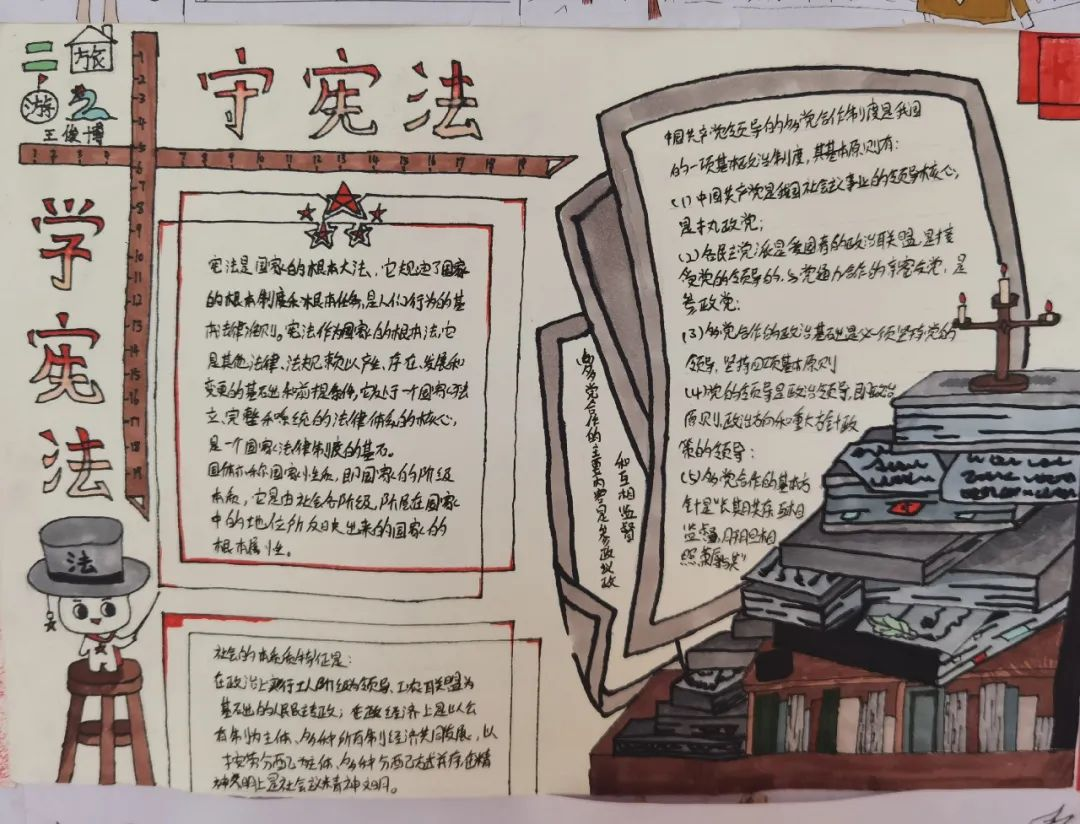 二旅
游2
王俊博
守宪法
学宪法
1 2 3 4 5 6 7 8 9 10 11 12 13 14 15 16 17 18 19
宪法是国家的根本大法、它规定了国家
的根本制度和根本任务,是人们行为的基
本法律准则。宪法作为国家的根本法,它
是其他法律、法规赖以产生、存在、发展和
变更的基础和前提条件,它处于一个国家
立、完整和系统的法律体系的核心,
是一个国家法律制度的基石。
国体亦称国家性质,即国家的阶级
本质,它是由社会各阶级,阶层在国家
中的地位所反映出来的国家的
根本属性。
法
社会的本质特征是:
在政治上 工人阶级领导、工农联盟为
基础的人民民主专政;在 经济上是以公
有制为主体、多种所有制经济共同发展,以
按劳分配为主体、多种分配方式并存 精
神文明上是社会主义精神文明。
中国共产党领导的多党合作制度是我国
的一项基本政治制度,其基本原则有:
(1)中国共产党是我国社会主义事业的领导核心,
是执政党;
(2)各民主党派是 政治联盟,是接
受党的领导的,与党通力合作的亲密友党,是
参政党;
(3)多党合作的政治基础是必须坚持党的
领导,坚持四项基本原则
(4)党的领导是政治领导,即政治
原则、政治方向和重大方针政
策的领导;
(5)多党合作的基本方
针是"长期共存、互相
监督、肝胆相
照、荣辱与共"
多党合作的主要内容是参政议政
和互相监督